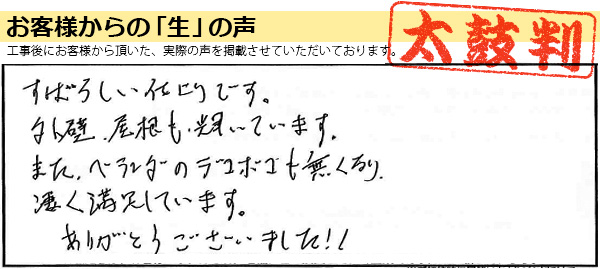 お客様からの「生」の声
太鼓判
工事後にお客様から頂いた、実際の声を掲載させていただいております。
すばらしい仕上りです。
外壁、屋根も輝いています。
また、ベランダのデコボコも無くなり、
凄く満足しています。
ありがとうございました!!